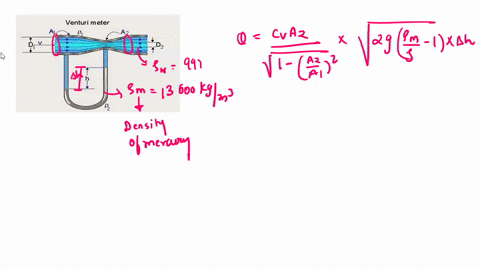 Venturi meter
A₁ P₁ A₂
D₁ V D₂
Δh h
P₂
ρm = 997
ρm = 13600 kg/m³
Density
of mercury
Q = CvA2 / √(1-(A2/A1)²) × √(2g(ρm/ρ -1)×Δh)